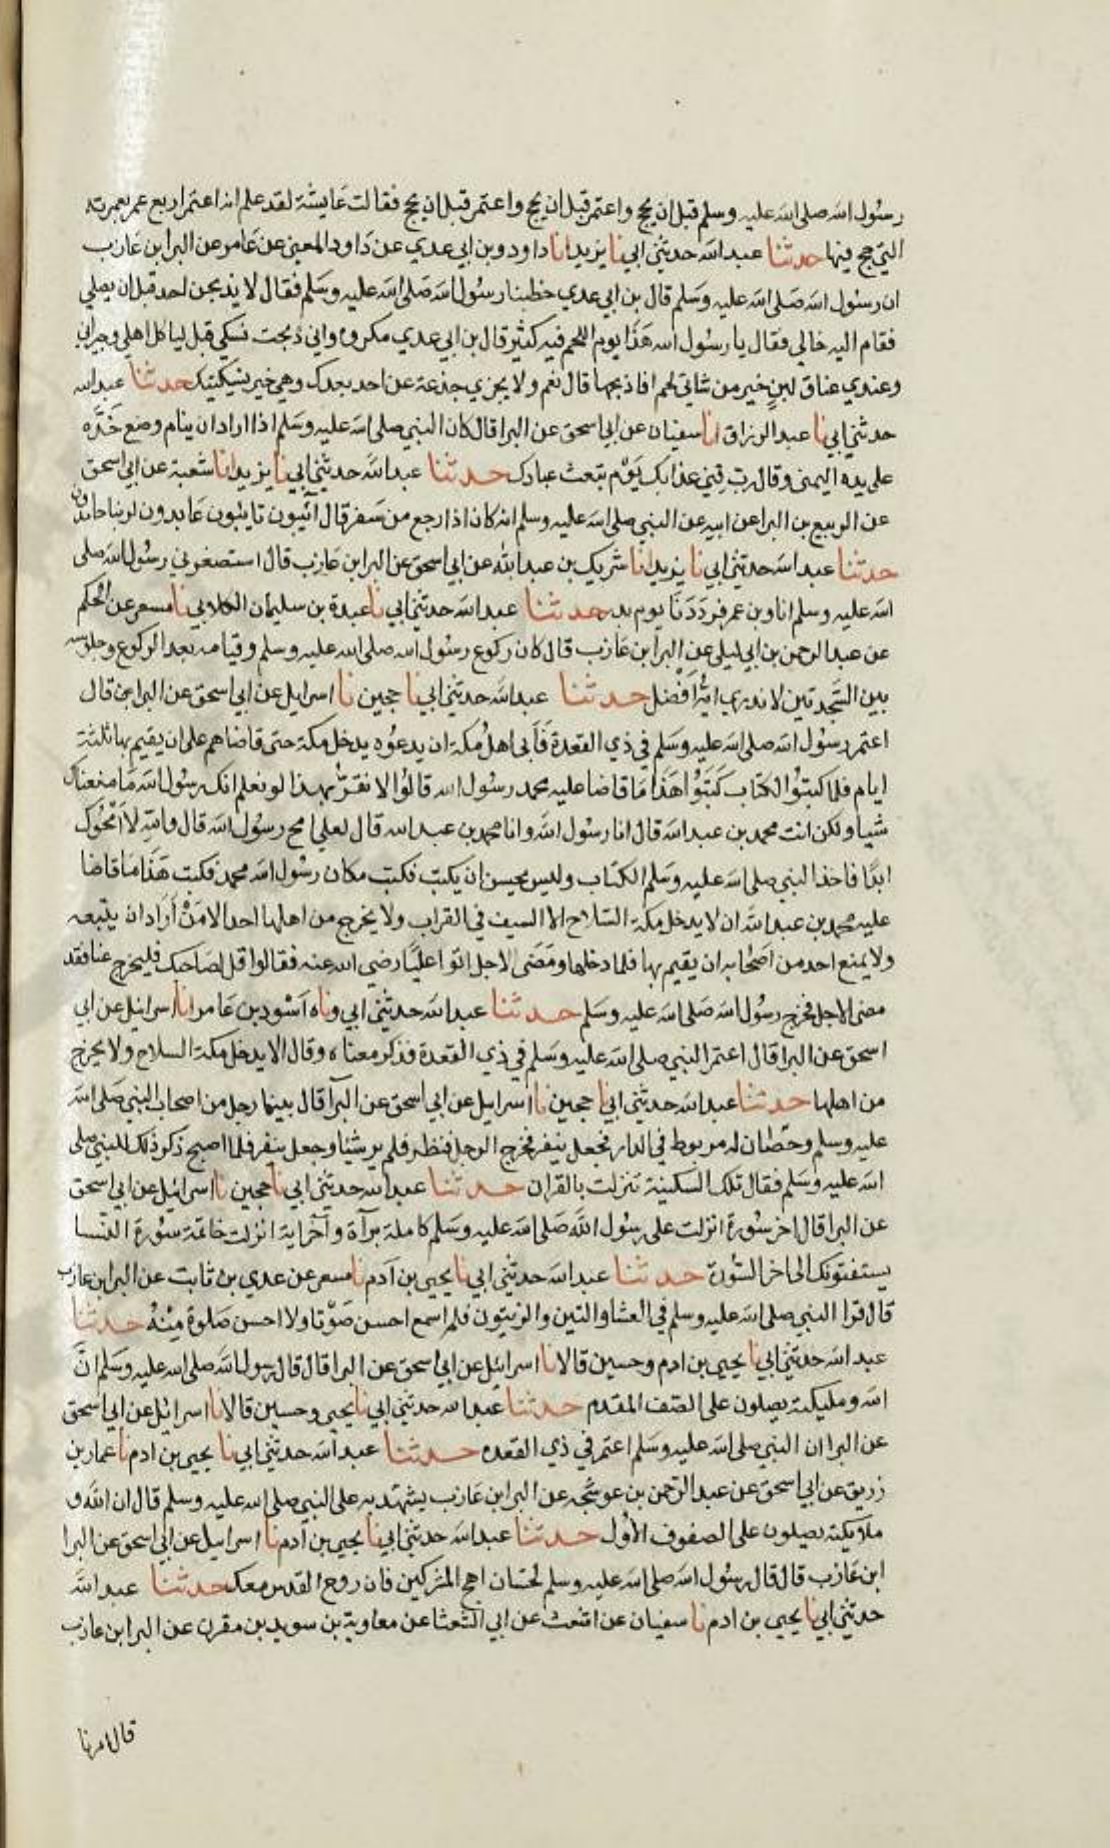 رسول الله صلى الله عليه وسلم قبل ان يحج واعتمر قبل ان يحج واعتمر قبل ان يحج فقالت عايشة لقد علم انه اعتمر اربع عمر بعمرته
التي حج فيها حدثنا عبد الله حدثني ابي نا يزيد انا داود وبن ابي عدي عن داود المعنى عن عامر عن البرا ابن عازب
ان رسول الله صلى الله عليه وسلم قال بن ابي عدي خطبنا رسول الله صلى الله عليه وسلم فقال لا يذبحن احد قبل ان يصلي
فقام اليه خالي فقال يا رسول الله هذا يوم اللحم فيه كثير قال بن ابي عدي مكروه واني ذبحت نسكي قبل لياكل اهلي وجيراني
وعندي عناق لبن خير من شاتي لحم افاذبحها قال نعم ولا يجزي جذعة عن احد بعدك وهي خير نسيكتيك حدثنا عبد الله
حدثني ابي نا عبد الرزاق انا سفيان عن ابي اسحق عن البرا قال كان النبي صلى الله عليه وسلم اذا اراد ان ينام وضع خده
على يده اليمنى وقال رب قني عذابك يوم تبعث عبادك حدثنا عبد الله حدثني ابي نا يزيد انا شعبة عن ابي اسحق
عن الربيع بن البرا عن ابيه عن النبي صلى الله عليه وسلم انه كان اذا رجع من سفر قال آئبون تايبون عابدون لربنا حامدون
حدثنا عبد الله حدثني ابي نا يزيد انا شريك بن عبد الله عن ابي اسحق عن البرا بن عازب قال استصغرني رسول الله صلى
الله عليه وسلم انا وبن عمر فرددنا يوم بدر حدثنا عبد الله حدثني ابي نا عبدة بن سليمان الكلابي نا مسعر عن الحكم
عن عبد الرحمن بن ابي ليلى عن البرا ابن عازب قال كان ركوع رسول الله صلى الله عليه وسلم وقيامه بعد الركوع وجلوسه
بين السجدتين لا ندري ايه افضل حدثنا عبد الله حدثني ابي نا حجين نا اسرايل عن ابي اسحق عن البرا بن قال
اعتمر رسول الله صلى الله عليه وسلم في ذي القعدة فابى اهل مكة ان يدعوه يدخل مكة حتى قاضاهم على ان يقيم بها ثلثة
ايام فلما كتبوا الكتاب كتبوا هذا ما قاضا عليه محمد رسول الله قالوا لا نقر بهذا لو نعلم انك رسول الله ما منعناك
شيا ولكن انت محمد بن عبد الله قال انا رسول الله وانا محمد بن عبد الله قال لعلي امح رسول الله قال والله لا امحوك
ابدا فاخذ النبي صلى الله عليه وسلم الكتاب وليس يحسن ان يكتب فكتب مكان رسول الله محمد فكتب هذا ما قاضا
عليه محمد بن عبد الله ان لا يدخل مكة السلاح الا السيف في القراب ولا يخرج من اهلها احد الا من أراد ان يتبعه
ولا يمنع احد من اصحابه ان يقيم بها فلما دخلها ومضى الاجل اتوا عليا رضي الله عنه فقالوا قل لصاحبك فليخرج عنا فقد
مضى الاجل فخرج رسول الله صلى الله عليه وسلم حدثنا عبد الله حدثني ابي وناه اسود بن عامر انا اسرائيل عن ابي
اسحق عن البرا قال اعتمر النبي صلى الله عليه وسلم في ذي القعدة فذكر معناه وقال الا يدخل مكة السلاح ولا يخرج
من اهلها حدثنا عبد الله حدثني ابي نا حجين نا اسرايل عن ابي اسحق عن البرآ قال بينما رجل من اصحاب النبي صلى الله
عليه وسلم وحصان له مربوط في الدار فجعل ينفر فخرج الرجل فنظر فلم ير شيئا وجعل ينفر فلما اصبح ذكر ذلك للنبي صلى
الله عليه وسلم فقال تلك السكينة تنزلت بالقران حدثنا عبد الله حدثني ابي نا حجين نا اسرائيل عن ابي اسحق
عن البرا قال اخر سورة انزلت على رسول الله صلى الله عليه وسلم كاملة برآة وآخر اية انزلت خاتمة سورة النسا
يستفتونك الى اخر السورة حدثنا عبد الله حدثني ابي نا يحيى بن آدم نا مسعر عن عدي بن ثابت عن البرا بن عازب
قال قرا النبي صلى الله عليه وسلم في العشا والتين والزيتون فلم اسمع احسن صوتا ولا احسن صلوة منه حدثنا
عبد الله حدثني ابي نا يحيى بن ادم وحسين قالا نا اسرائيل عن ابي اسحق عن البرا قال قال رسول الله صلى الله عليه وسلم ان
الله ومليكته يصلون على الصف المقدم حدثنا عبد الله حدثني ابي نا يحيى وحسين قالا نا اسرائيل عن ابي اسحق
عن البرا ان النبي صلى الله عليه وسلم اعتمر في ذي القعده حدثنا عبد الله حدثني ابي نا يحيى بن ادم نا عمار بن
زريق عن ابي اسحق عن عبد الرحمن بن عوسجه عن البرا بن عازب يشهد به على النبي صلى الله عليه وسلم قال ان الله و
ملايكته يصلون على الصفوف الأول حدثنا عبد الله حدثني ابي نا يحيى بن آدم نا اسرايل عن ابي اسحق عن البرا
ابن عازب قال قال رسول الله صلى الله عليه وسلم لحسان اهج المشركين فان روح القدس معك حدثنا عبد الله
حدثني ابي نا يحيى بن ادم نا سفيان عن اشعث عن ابي الشعثا عن معاوية بن سويد بن مقرن عن البرا ابن عازب
قال امرنا